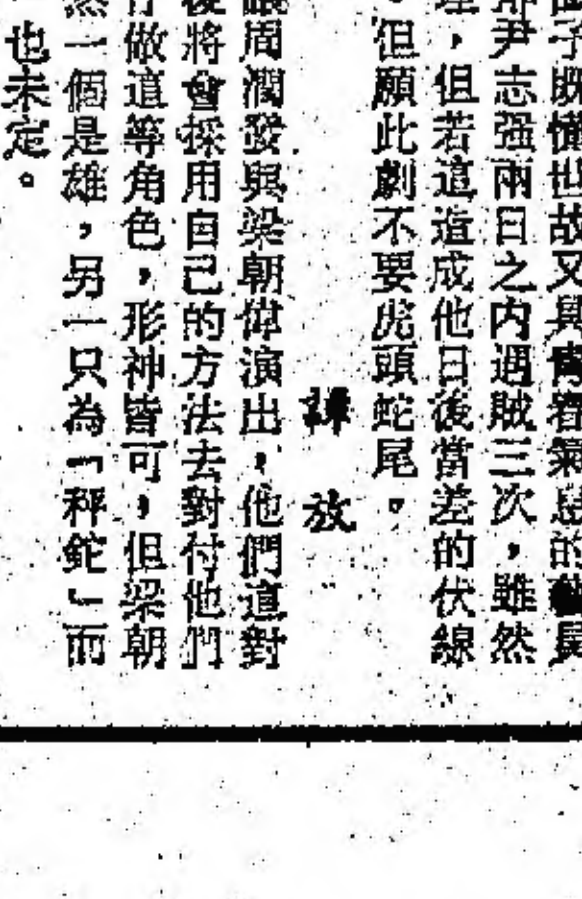 子既懂世故又具青春氣息的
尹志强兩日之内遇賊三次，雖然
，但若這造成他日後當差的伏線
。但願此劇不要虎頭蛇尾。
譚放
周潤發與梁朝偉演出，他們這對
將會採用自己的方法去對付他們
做這等角色，形神皆可，但梁朝
一個是雄，另一只為「秤鉈」而
也未定。